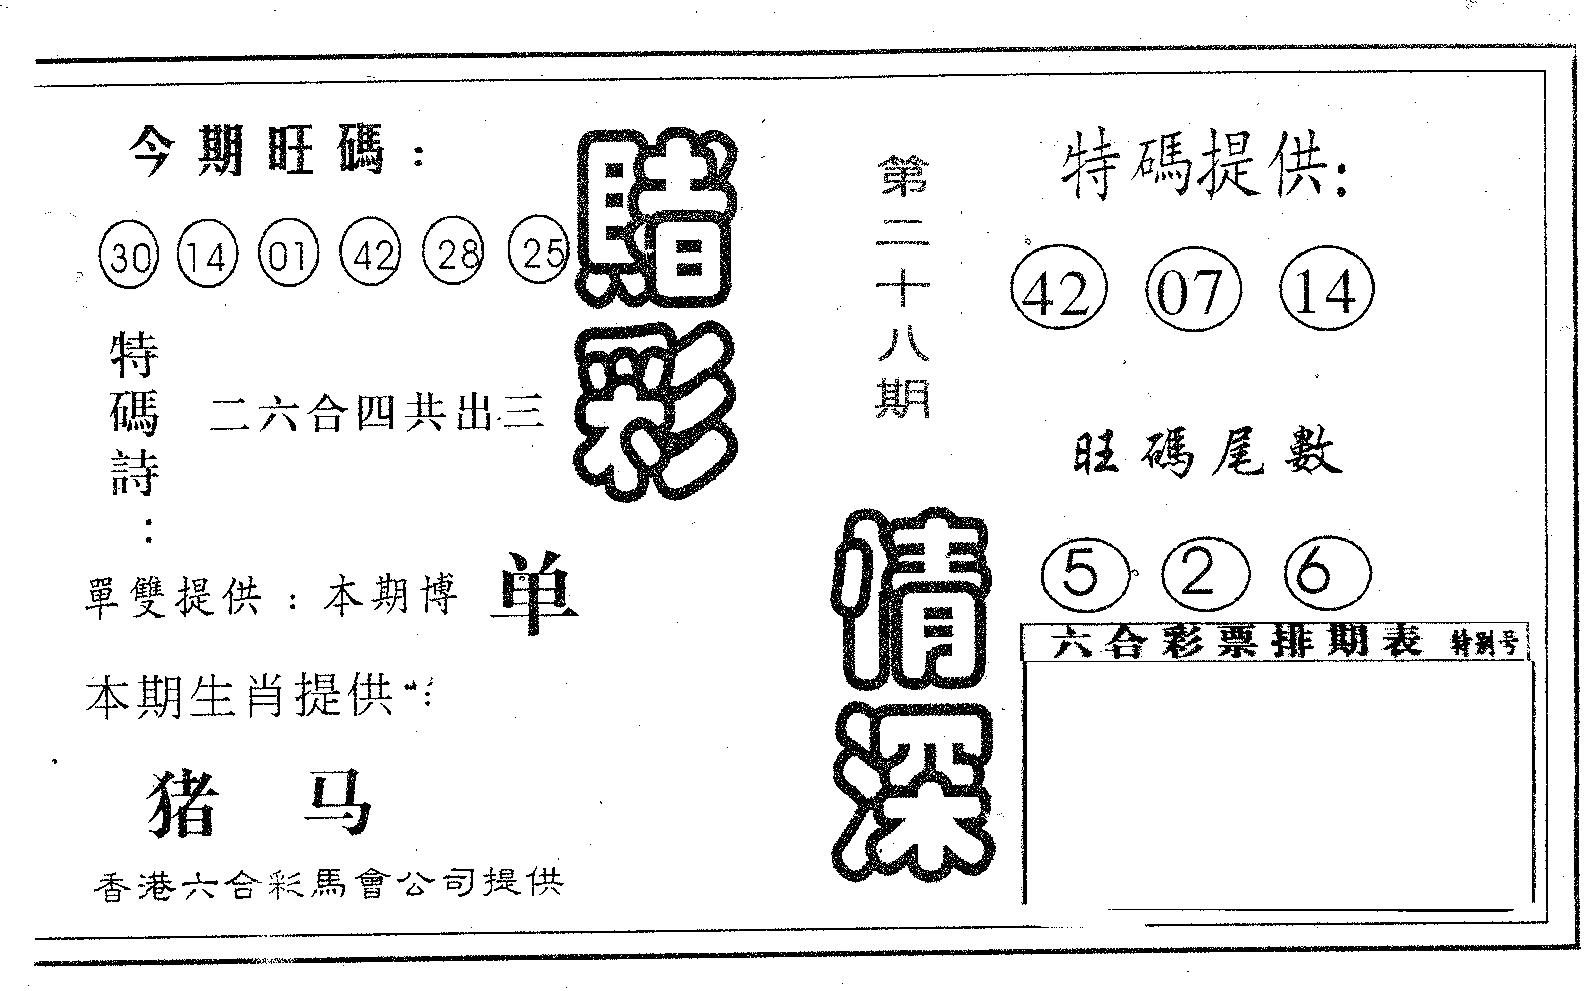 今期旺碼：
30 14 01 42 28 25
特碼詩：
二六合四共出三
單雙提供：本期博 单
本期生肖提供：
猪 马
香港六合彩馬會公司提供
賭彩
情深
第二十八期
特碼提供：
42 07 14
旺碼尾數
5 2 6
六合彩票排期表 特别号